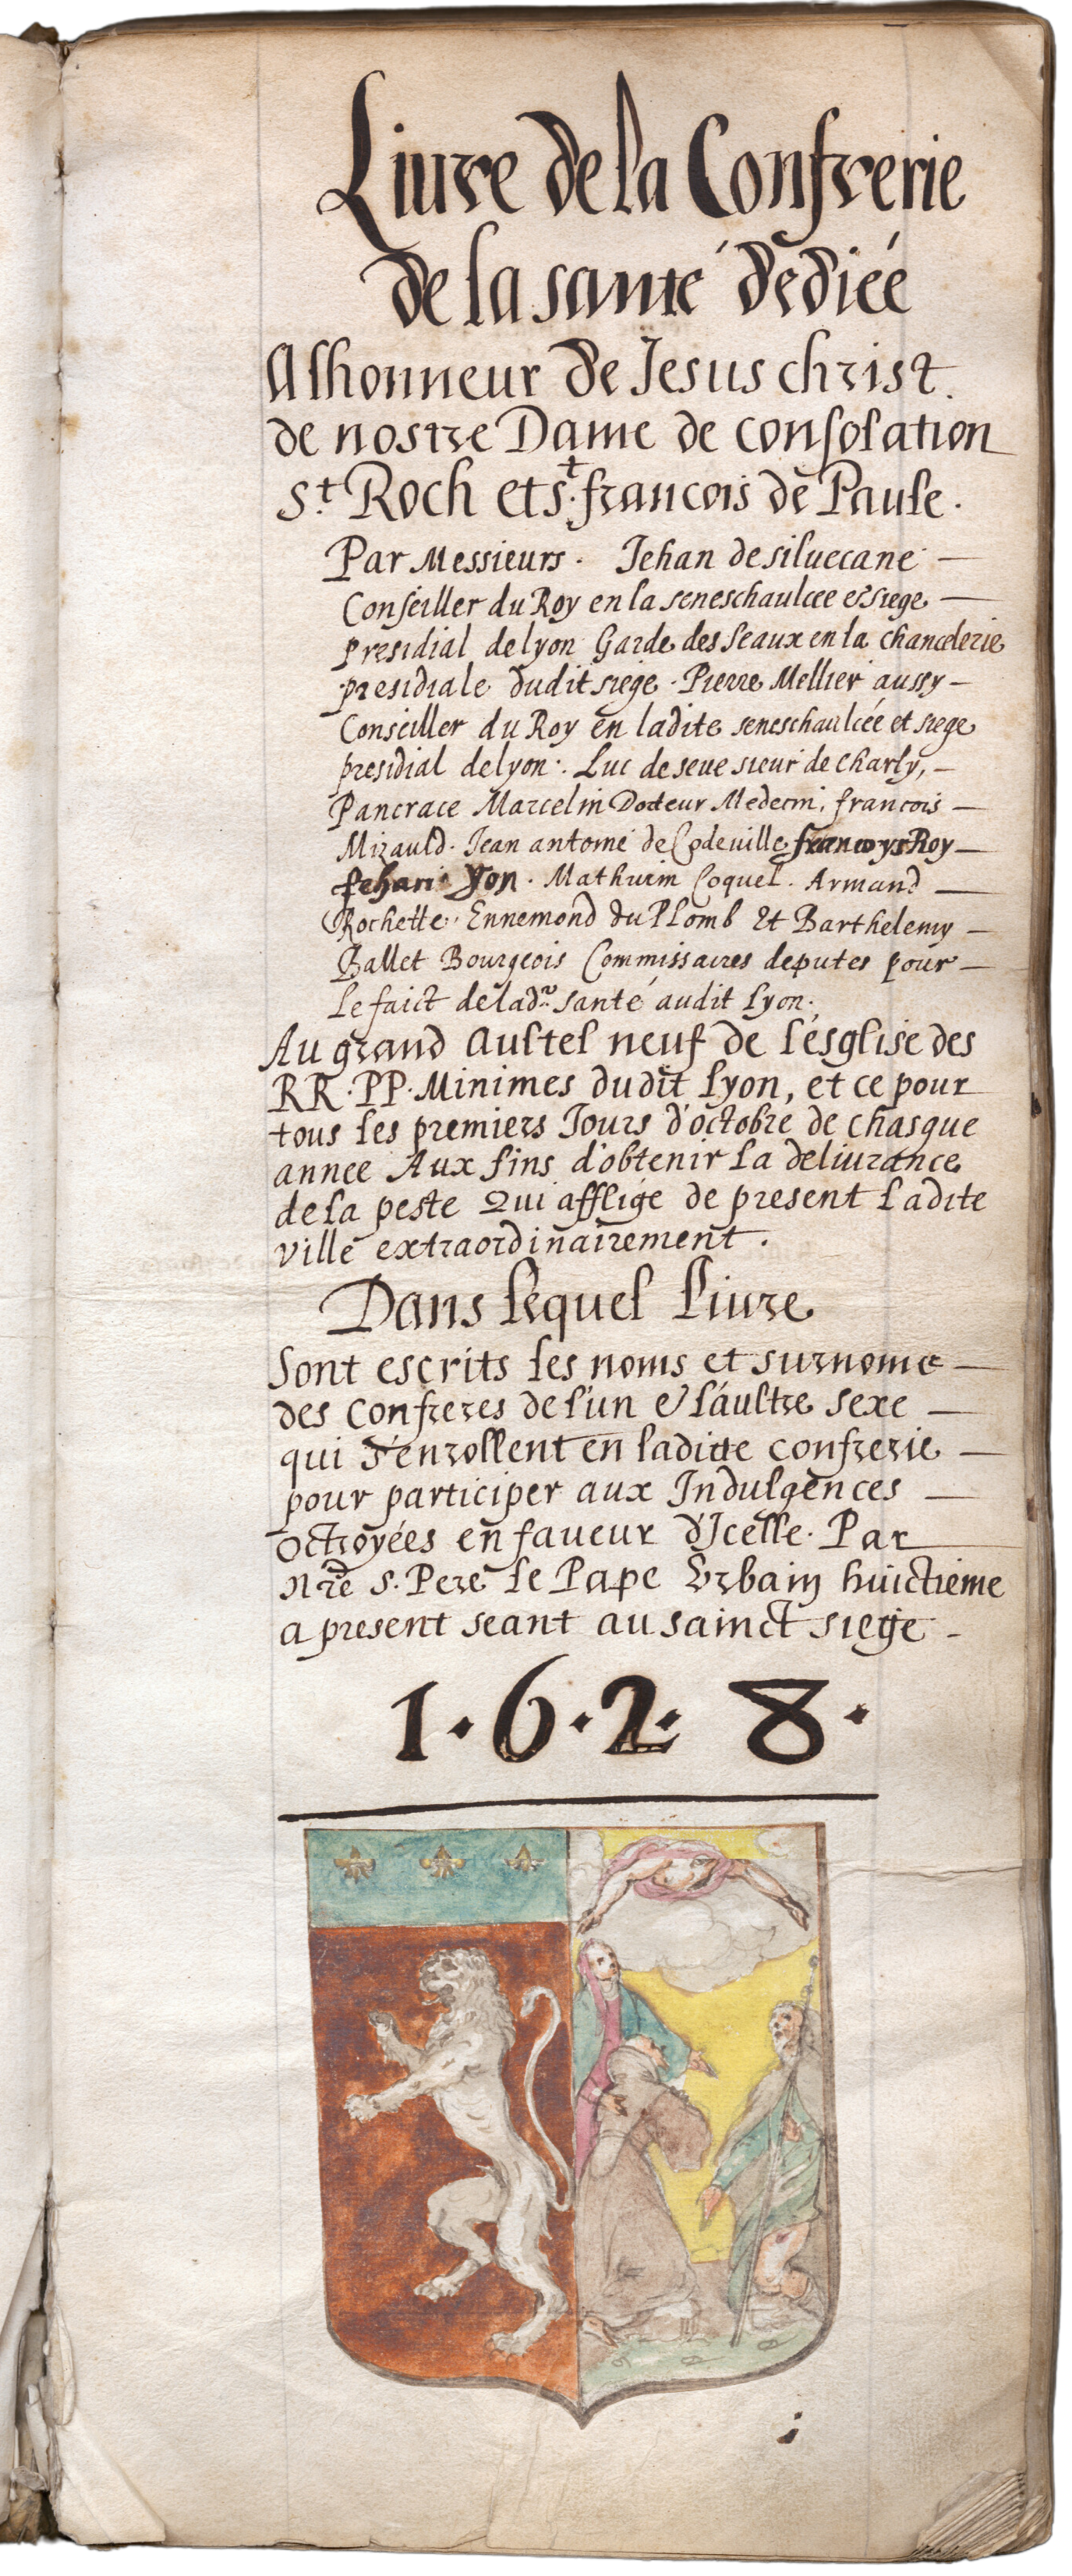 Liure de la Confrerie
de la santé dediéé
A lhonneur de Jesus christ.
de nostre Dame de consolation
St. Roch et st. francois de Paule.
Par Messieurs. Jehan de siluecane
Conseiller du Roy en la seneschaulcee & siege
presidial de lyon Garde des seaux en la chancelerie
presidiale dudit siege. Pierre Mellier aussy
Conseiller du Roy en ladite seneschaulcée et siege
presidial de lyon. Luc de seue sieur de charly,
Pancrace Marcelin Docteur Medecin, francois
Mizauld. Jean antoine de Codeuille francoys Roy
Jehan Yon. Mathurin Coquel. Armand
Rochette. Ennemond du Plomb Et Barthelemy
Ballet Bourgeois Commissaires deputes pour
Le faict de lad. santé audit Lyon.
Au grand Aultel neuf de l'esglise des
RR. PP. Minimes dudit Lyon, et ce pour
tous les premiers Jours d'octobre de chasque
annee Aux fins d'obtenir la deliurance
de la peste Qui afflige de present Ladite
ville extraordinairement.
Dans lequel liure
Sont escrits les noms et surnoms
des confreres de l'un & l'aultre sexe
qui s'enrollent en laditte confrerie
pour participer aux Indulgences
octroyées en faueur d'Icelle. Par
Nre s. Pere le Pape Vrbain huictieme
a present seant au sainct siege
1.6.2.8.